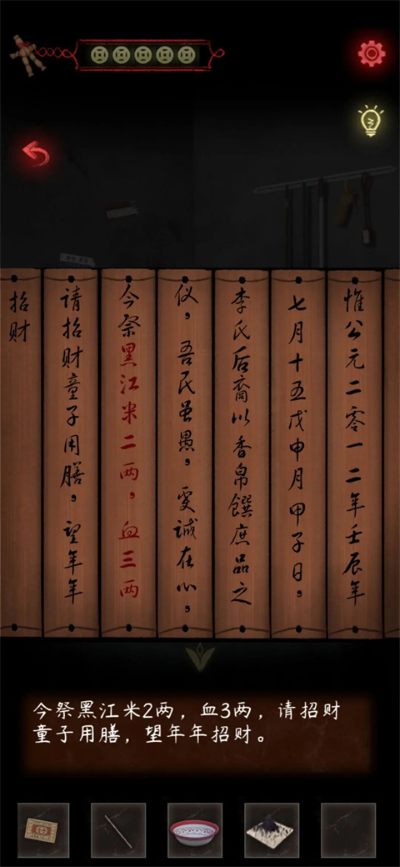 惟公元二零一二年壬辰年
七月十五戊申月甲子日，
李氏后裔以香帛馔庶品之
仪，吾民虽愚，更诚在心，
今祭黑江米二两，血三两
请招财童子用膳，望年年
招财
今祭黑江米2两，血3两，请招财
童子用膳，望年年招财。